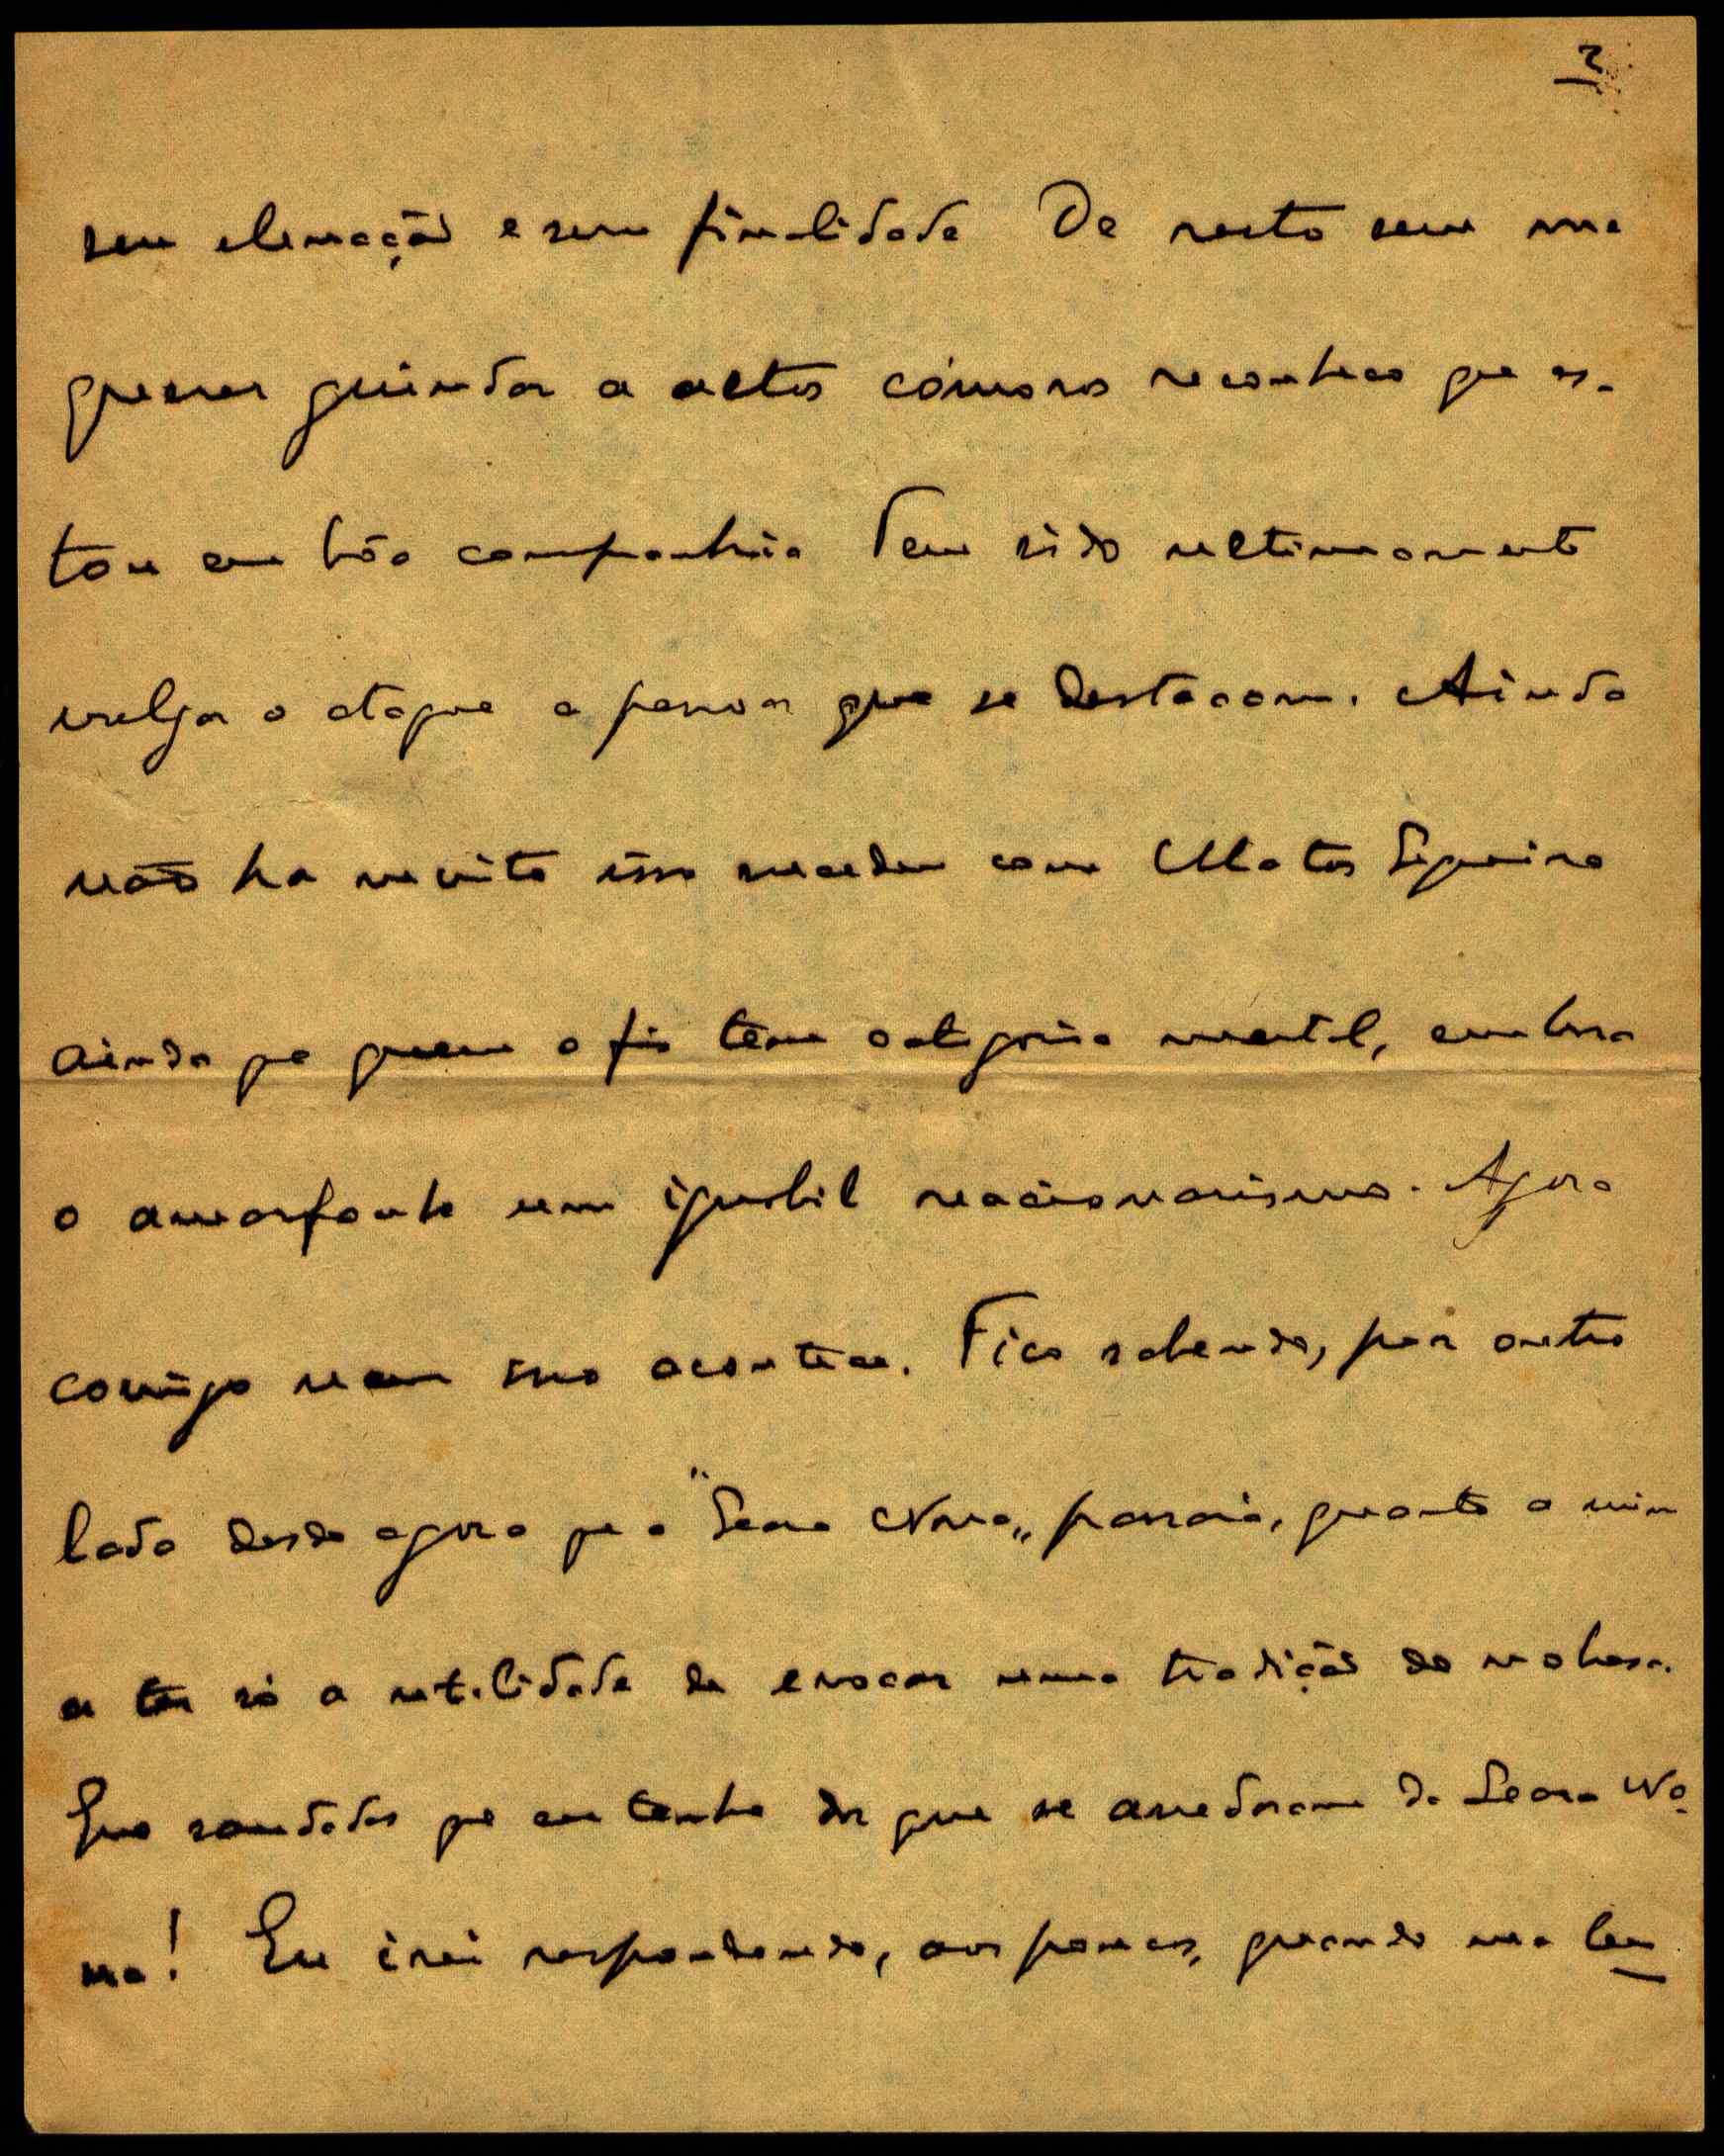 2
sem elevação e sem finalidade De resto sem me
querer guindar a altos cómoros reconheco que es-
tou em bôa companhia Tem sido ultimamente
vulgar o ataque a pessoas que se destacam. Ainda
não ha muito isso sucedeu com Matos Sequeira
ainda que quem o fês tem categoria mental, embora
o amorfanhe um ignobil reacionarismo. Agora
comigo nem isso acontece. Fico sabendo, por outro
lado desde agora que a "Seara Nova„ passará, quanto a mim
a ter só a utilidade de evocar uma tradição de nobresa.
Que saudades que eu tenho dos que se arredaram da Seara No-
va! Eu irei respondendo, aos poucos, quando me lem